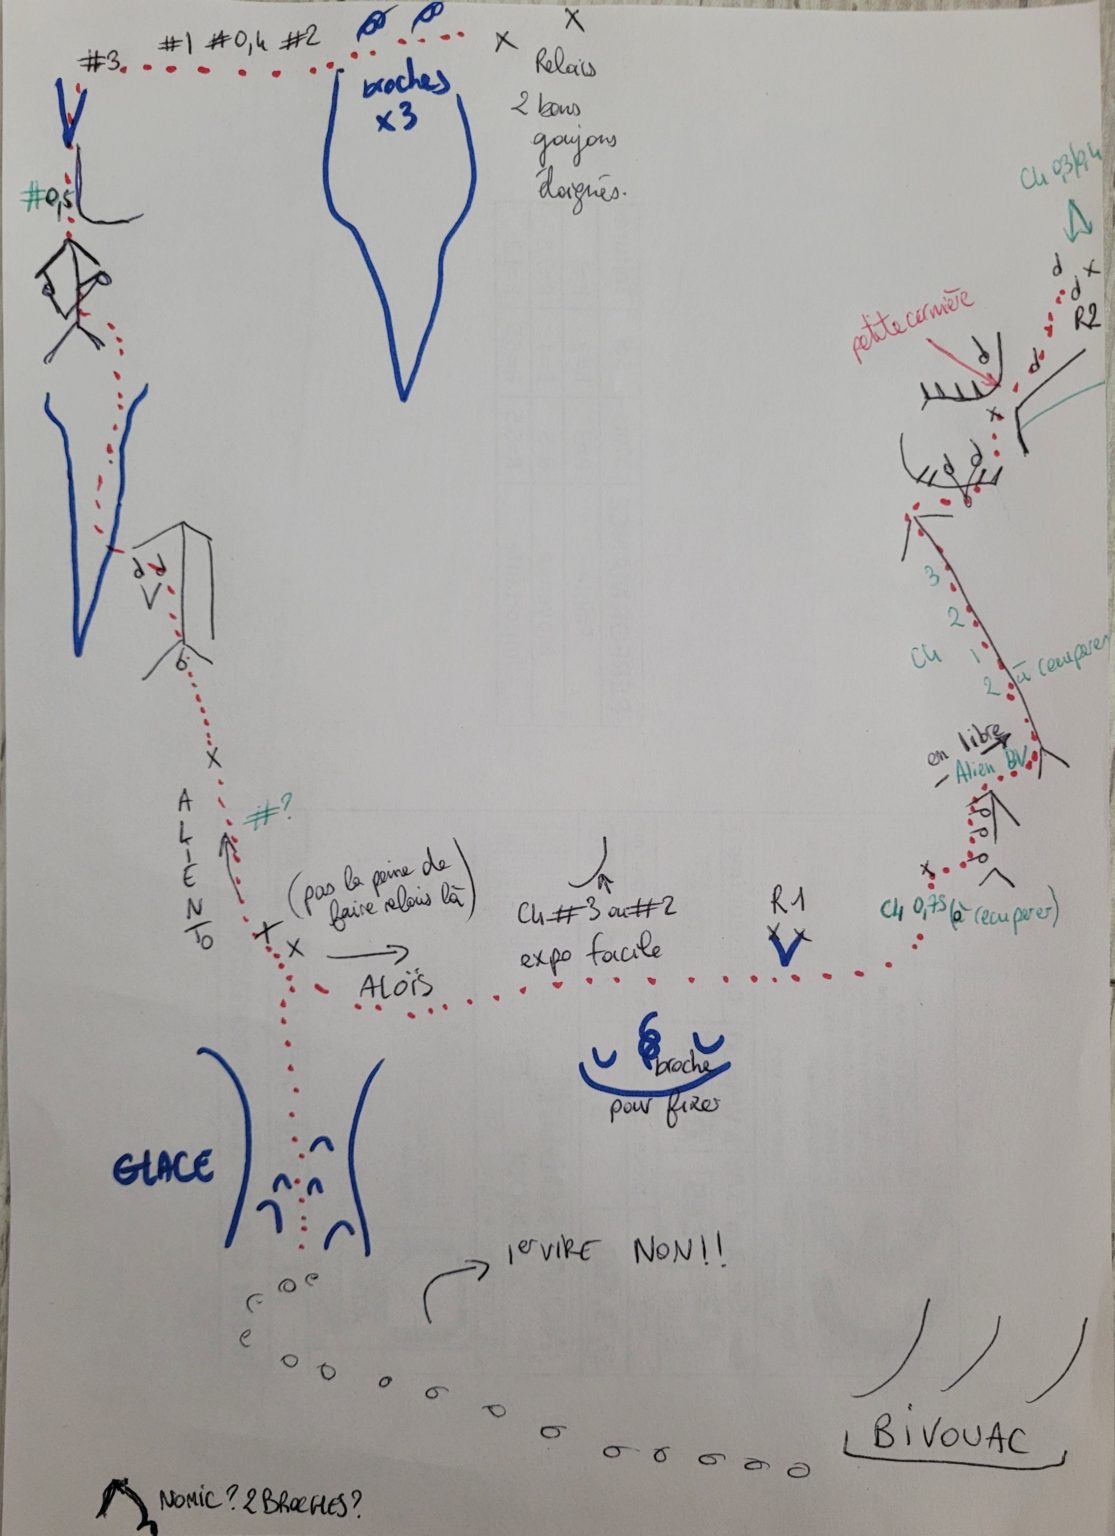 #3 #1 #0,4 #2
broches
x3
Relais
2 bons
goujons
éloignés.
#0,5
Ch 0,3/0,4
R2
petite cornière
3
2
Ch 1
2 à recuperer
en libre
Alien BV
Ch 0,75 (à recuperer)
#?
ALIEN
(pas la peine de
faire relais là)
ALOÏS
Ch #3 ou #2
expo facile
R1
broche
pour fixer
GLACE
1er VIRE NON!!
BIVOUAC
NOMIC? 2 BROCHES?